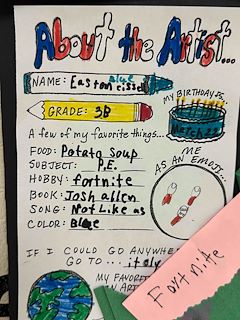 About the Artist...
NAME: Easton blue cissell
MY BIRTHDAY IS,
MARCH 23
GRADE: 3B
A few of my favorite things...
FOOD: Potato soup
SUBJECT: P.E.
HOBBY: fortnite
BOOK: Josh allen
SONG: Not Like as
COLOR: Blue
ME
AS AN EMOJI...
IF I COULD GO ANYWHE
GO TO... italy
MY FAVORI
Fortnite